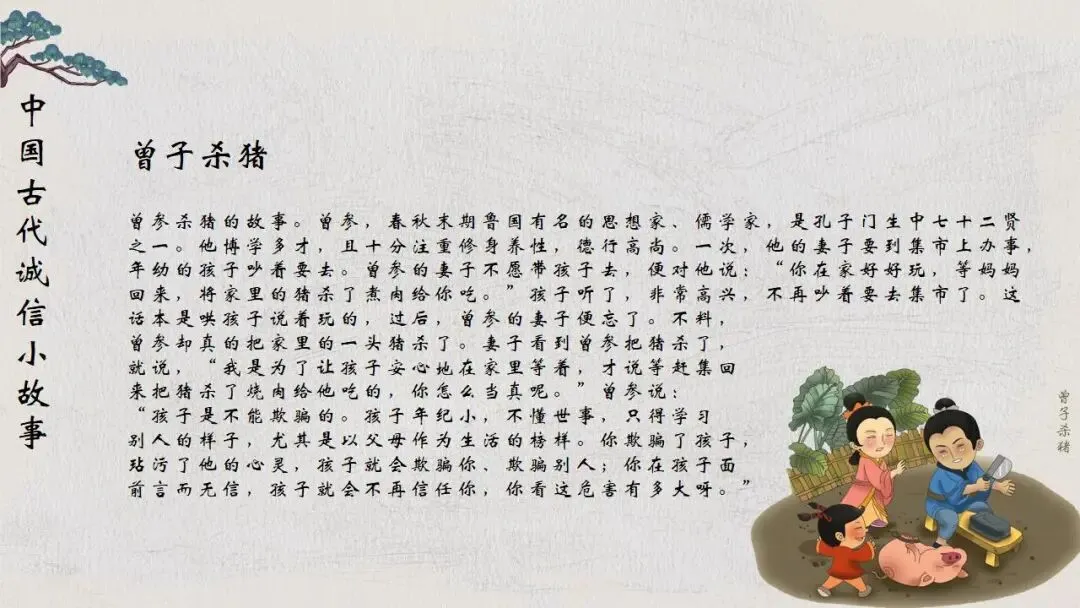 中国古代诚信小故事
曾子杀猪
曾参杀猪的故事。曾参，春秋末期鲁国有名的思想家、儒学家，是孔子门生中七十二贤
之一。他博学多才，且十分注重修身养性，德行高尚。一次，他的妻子要到集市上办事，
年幼的孩子吵着要去。曾参的妻子不愿带孩子去，便对他说：“你在家好好玩，等妈妈
回来，将家里的猪杀了煮肉给你吃。”孩子听了，非常高兴，不再吵着要去集市了。这
话本是哄孩子说着玩的，过后，曾参的妻子便忘了。不料，
曾参却真的把家里的一头猪杀了。妻子看到曾参把猪杀了，
就说，“我是为了让孩子安心地在家里等着，才说等赶集回
来把猪杀了烧肉给他吃的，你怎么当真呢。”曾参说：
“孩子是不能欺骗的。孩子年纪小，不懂世事，只得学习
别人的样子，尤其是以父母作为生活的榜样。你欺骗了孩子，
玷污了他的心灵，孩子就会欺骗你、欺骗别人；你在孩子面
前言而无信，孩子就会不再信任你，你看这危害有多大呀。”
曾子杀猪